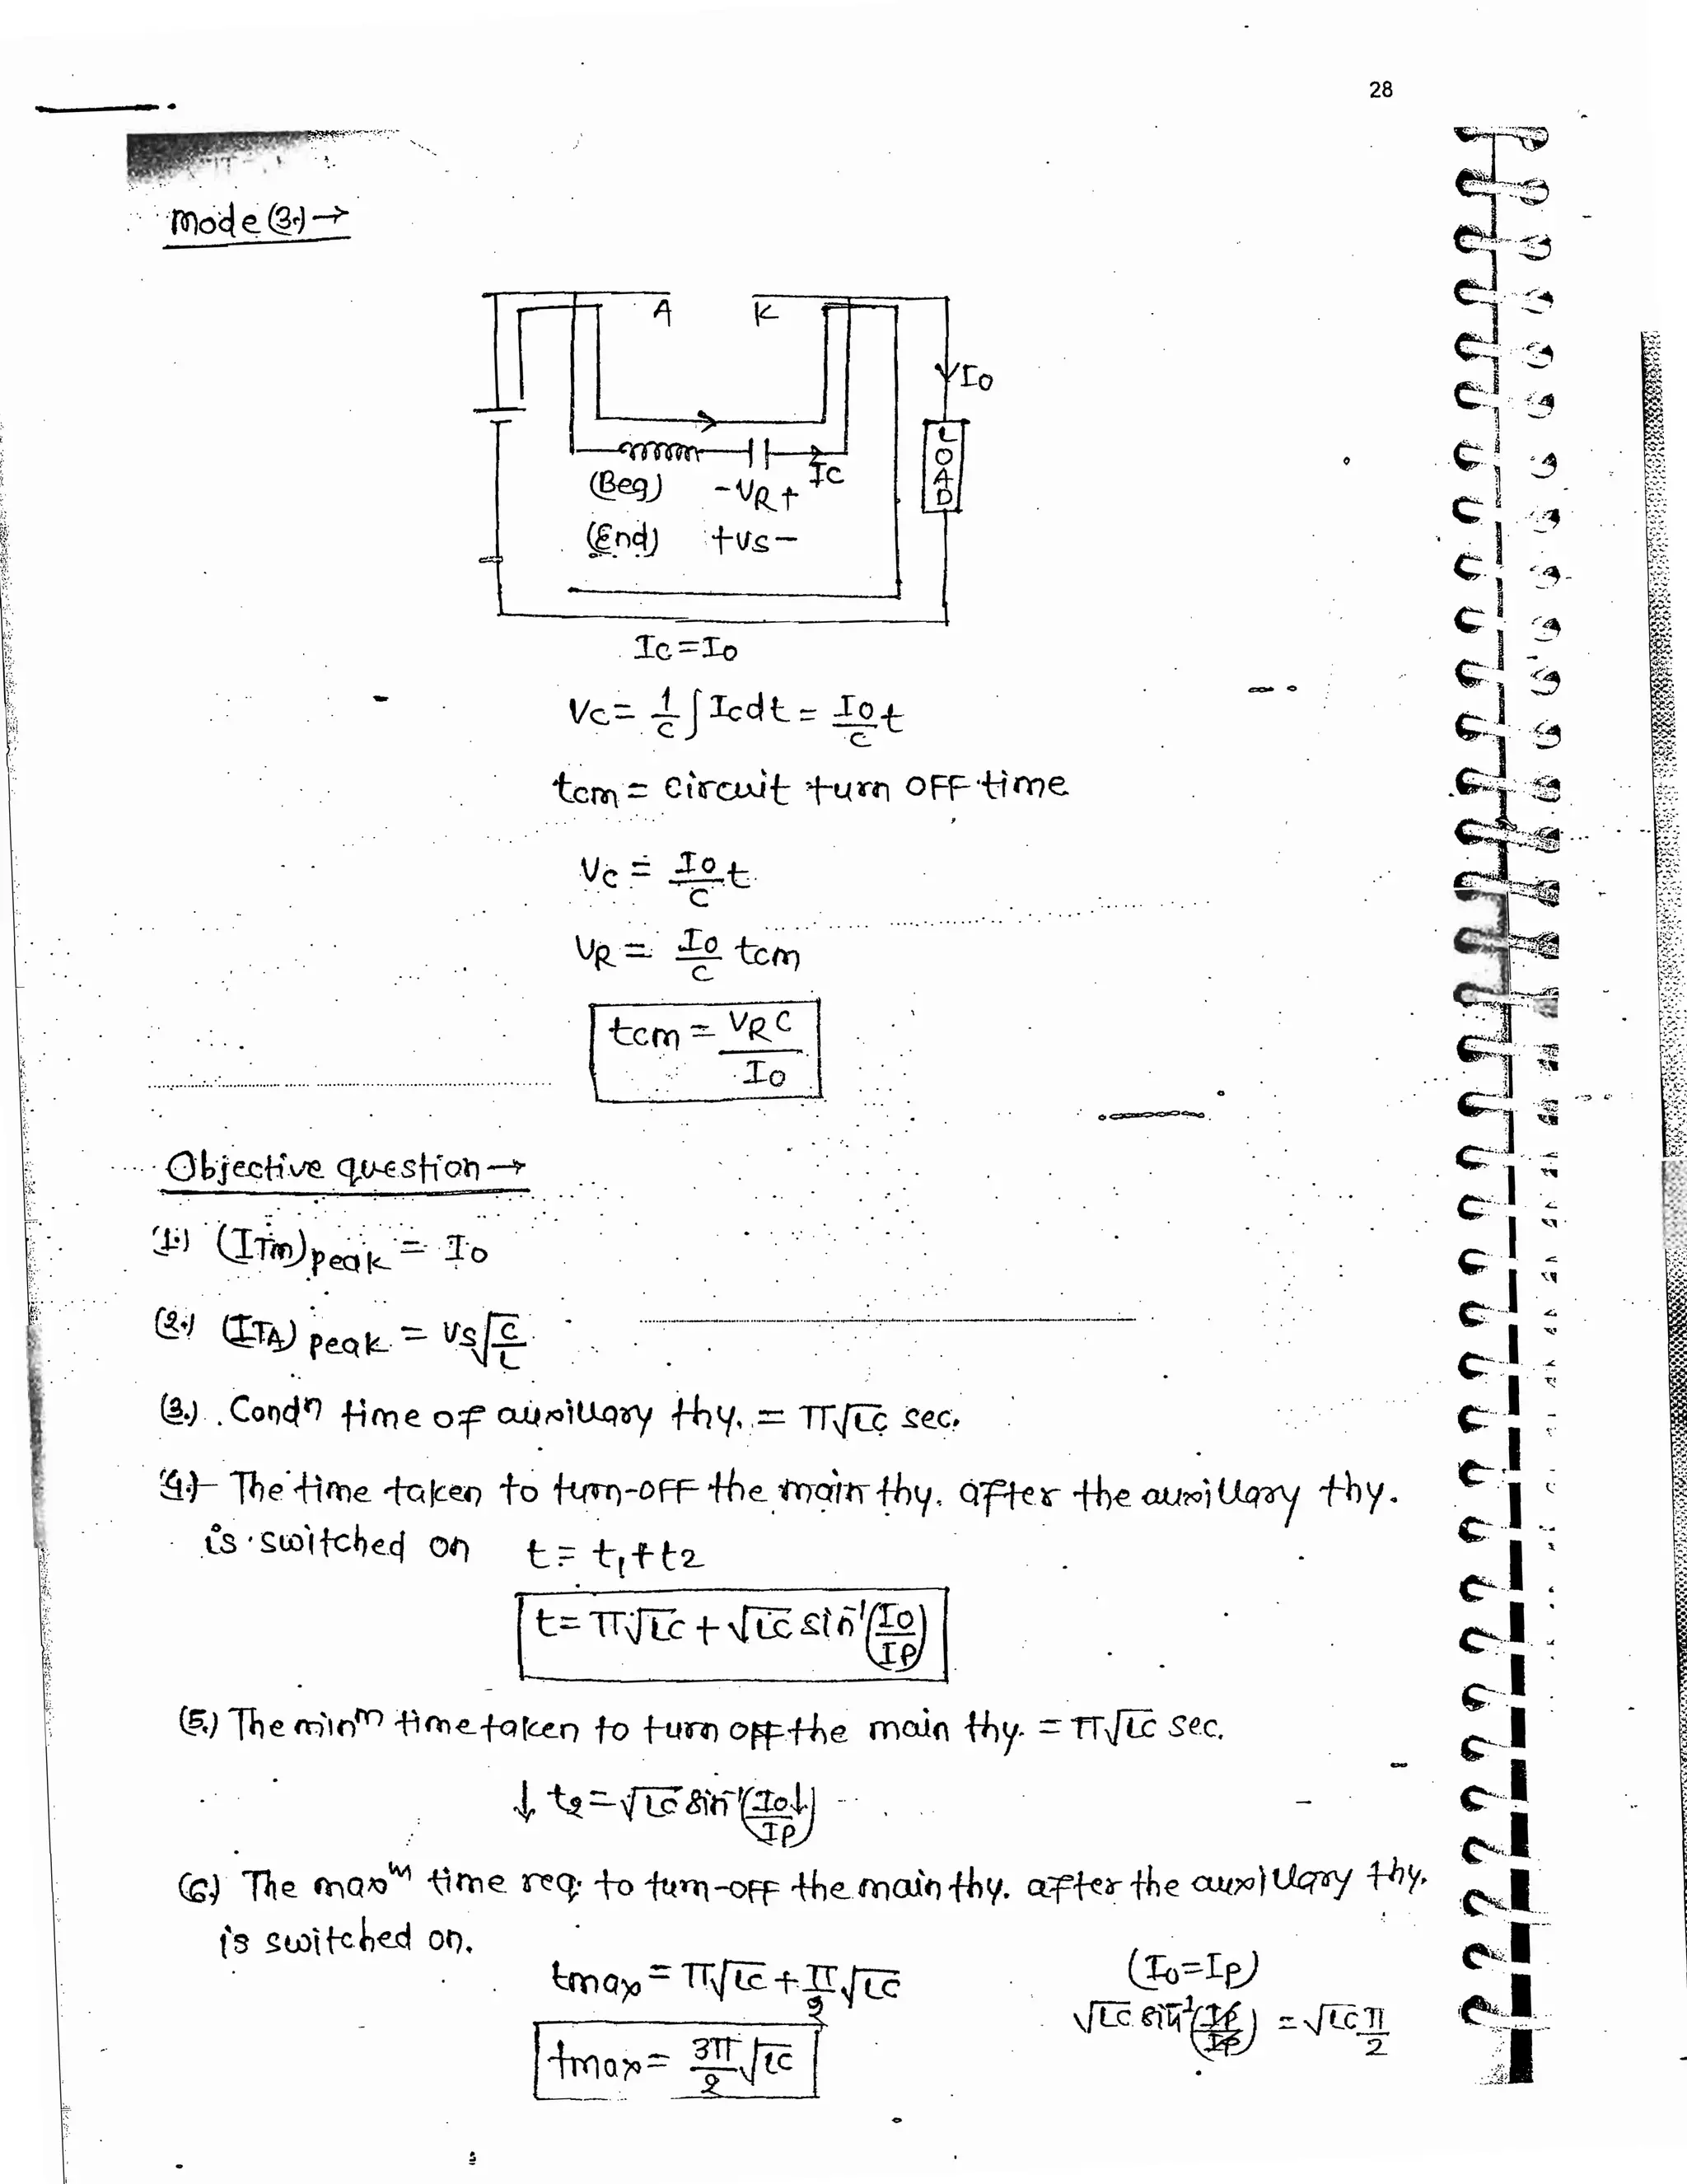 28
Mode (3.) →
A K
↓ I0
LOAD
(Beg) -VR+ IC
(End) +Vs-
Ic = Io
Vc = 1/C ∫ Ic dt = Io/C t
tcm = Circuit turn OFF time
Vc = Io/C t
VR = Io/C tcm
tcm = VR C/Io
Objective question →
(1.) (ITm)peak = Io
(2.) (ITA)peak = Vs√(C/L)
(3.) Condn time of auxillary thy. = π√LC sec.
(4.) The time taken to turn-OFF the main thy. after the auxillary thy.
is switched on t = t1 + t2
t = π√LC + √LC sin⁻¹(Io/IP)
(5.) The minm time taken to turn off the main thy. = π√LC sec.
↓ t2 = √LC sin⁻¹(Io↓/IP)
(6.) The maxm time req. to turn-OFF the main thy. after the auxillary thy.
is switched on.
tmax = π√LC + π/2 √LC (Io = IP)
√LC sin⁻¹(IP/IP) = √LC π/2
tmax = 3π/2 √LC